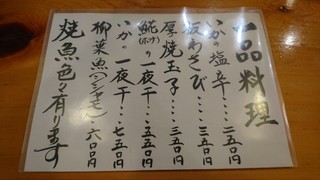 一品料理
いかの塩辛‥‥二五〇円
板わさび‥‥三五〇円
厚焼玉子‥‥三五〇円
鯱(ホッケ)の一夜干‥五五〇円
いかの一夜干‥七五〇円
柳葉魚(シシャモ)六〇〇円
焼魚色々有ります